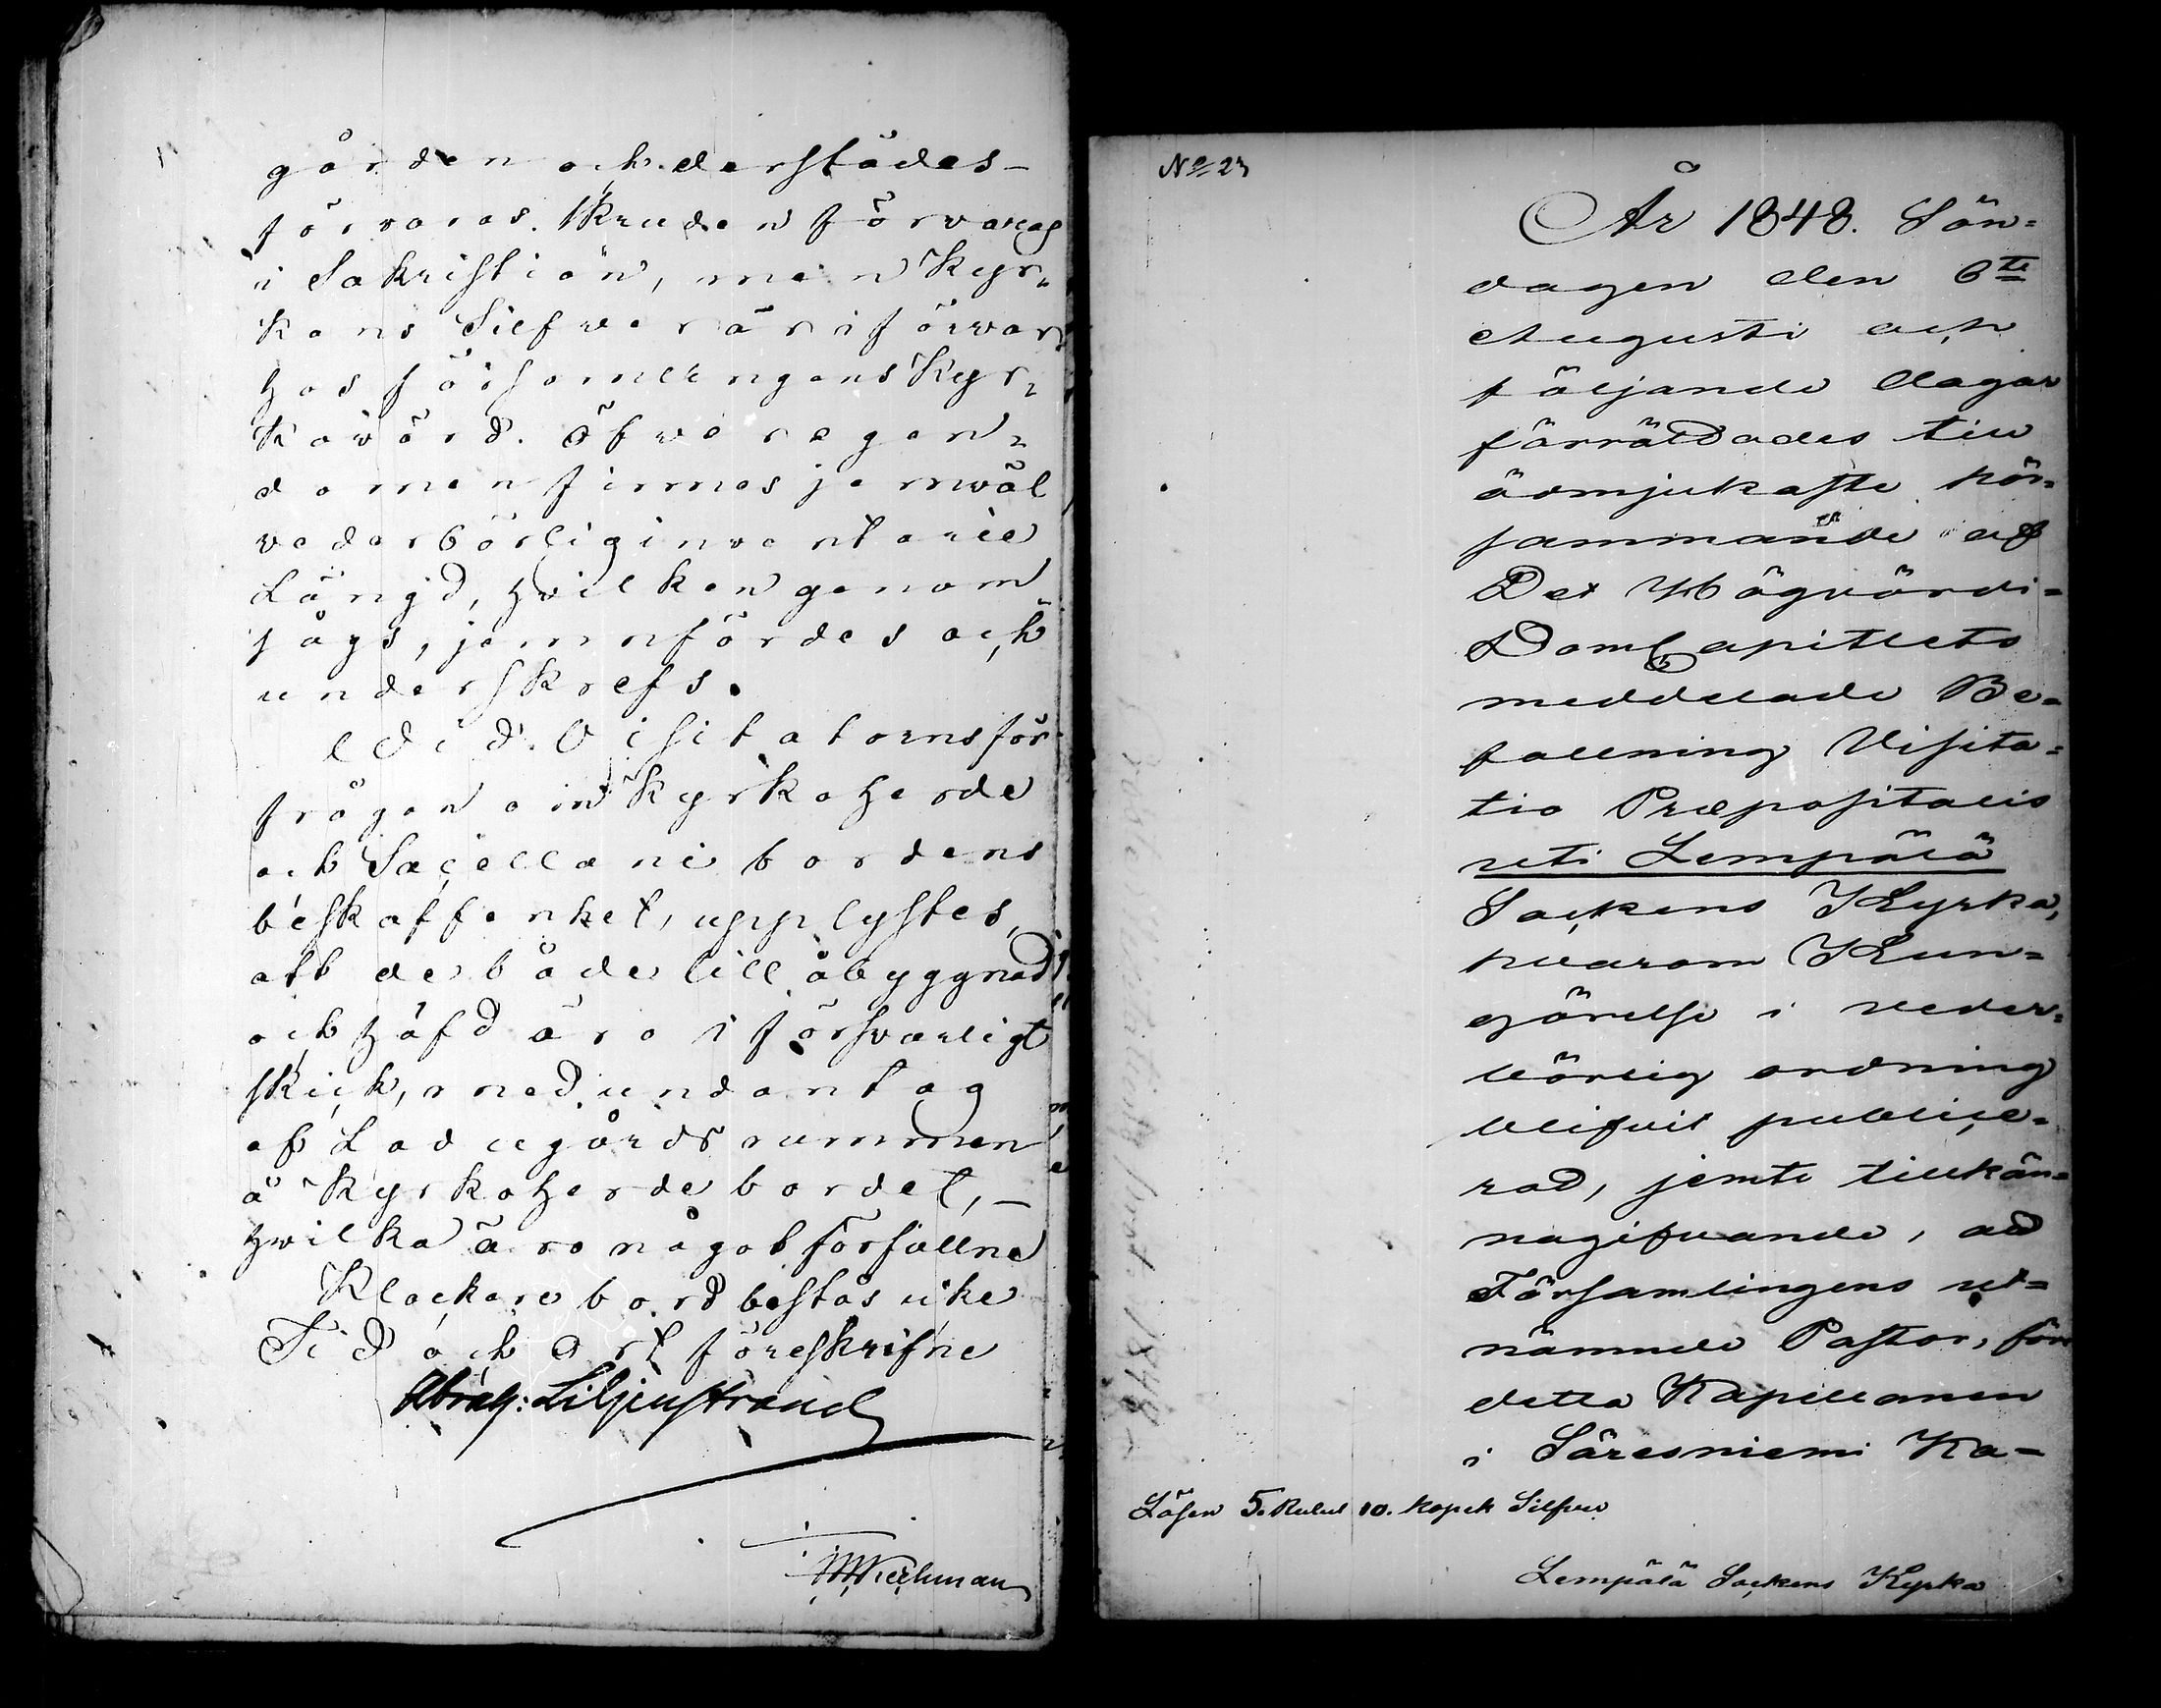 gården och derstädes
förvaras. Skruden förvaras
i Sakristian, men Kyr-
kans Silfver är i förvar
hos församlingens Kyr-
kovärd. Öfver egen-
domen finnes jemväl
vederbörlig inventarie
Längd, hvilken genom
sågs, jemnfördes och
underskrefs.
Vid Visitatorns för-
frågan om Kyrkoherde
och Sacellani bordens
beskaffenhet, upplystes,
att de både till åbyggnad
och häfd äro i försvarligt
skick, med undantag
af Ladugårds rummen
å Kyrkoherde bordet,
hvilka äro något förfallne
Klockare bord bestås icke
Tid och Ort föreskrifne
Abrah: Liljenstrand
№ 23
År 1848. Sön-
dagen den 6te
Augusti och
följande dagar
förrättades till
ödmjukaste hör-
sammande af
Det Högvördi-
DomCapitlets
meddelade Be-
fallning Visita-
tio Præpositalis
uti Lempälä
Sockens Kyrka,
hvarom Kun-
görelse i veder-
börlig ordning
blifvit publice-
rad, jemte tillkän-
nagifvande, att
Församlingens ut-
nämnde Pastor, förr
detta Kapellanen
i Säresniemi Ka-
Lösen 5. Rubel 10. kopek Silfver
Lempälä Sockens Kyrka